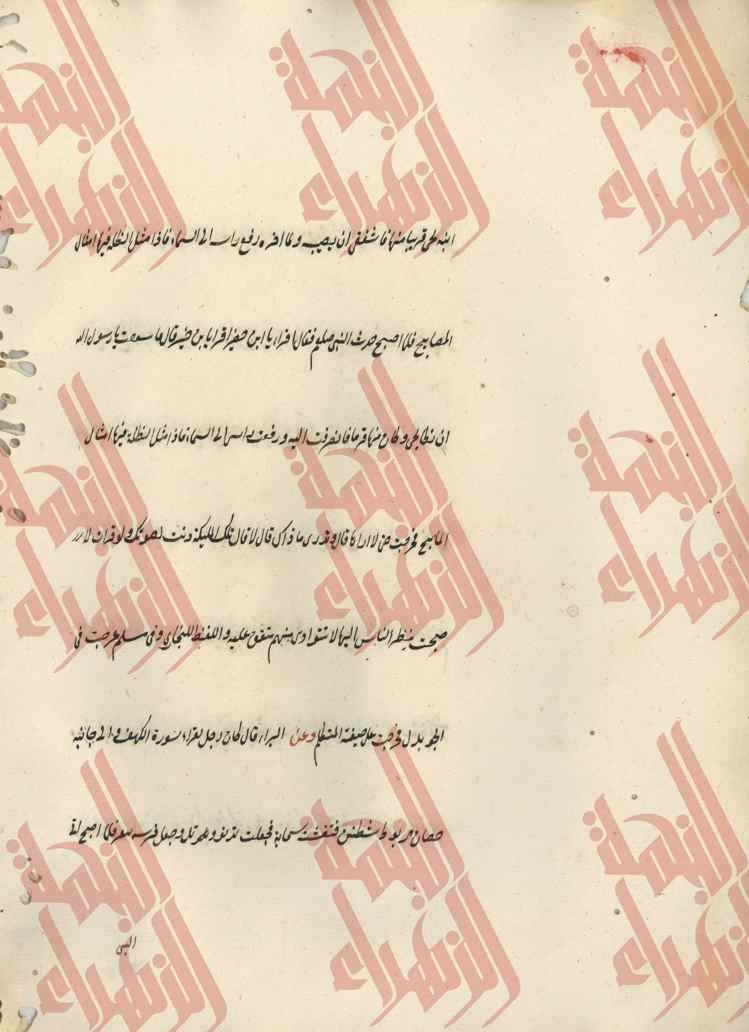 ابنه يحيى قريبا منها فاشفق ان يصيبه ولما اخره رفع راسه الى السماء فاذا مثل الظلة فيها امثال
المصابيح فلما اصبح حدث النبي صلعم فقال اقرا يا ابن حضير اقرا يا بن حضير قال فاشفقت يا رسول الله
ان تطا يحيى وكان منها قريبا فانصرفت اليه ورفعت راسى الى السماء فاذا مثل الظلة فيها امثال
المصابيح فخرجت حتى لا اراها قال وتدرى ما ذاك قال لا قال تلك المليكة دنت لصوتك ولو قرات لا
صبحت ينظر الناس اليها لا تتوارى منهم متفق عليه واللفظ للبخاري وفى مسلم عرجت فى
الجو بدل فخرجت على صيغة المتكلم وعن البراء قال كان رجل يقراء سورة الكهف والى جانبه
حصان مربوط بشطنين فتغشته سحابة فجعلت تدنو وتدنو وجعل فرسه ينفر فلما اصبح اتى
النبي
البتحة الزهراء